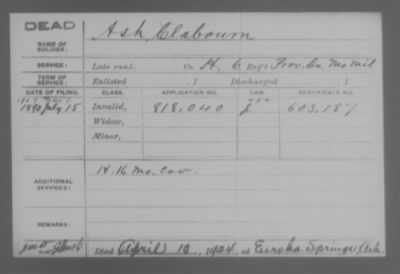 DEAD
Ash, Clabourn
NAME OF SOLDIER:
SERVICE: Late rank, Co. H, 6 Reg't Prov. En. Mo Mil
TERM OF SERVICE: Enlisted , 1 Discharged , 1
DATE OF FILING. CLASS. APPLICATION NO. LAW. CERTIFICATE NO.
1890 July 15 Invalid, 818.040 603,187
Widow,
Minor,
H. 16 Mo. Cav.
ADDITIONAL SERVICES:
REMARKS:
Died April 10, 1924, at Eureka Springs, Ark